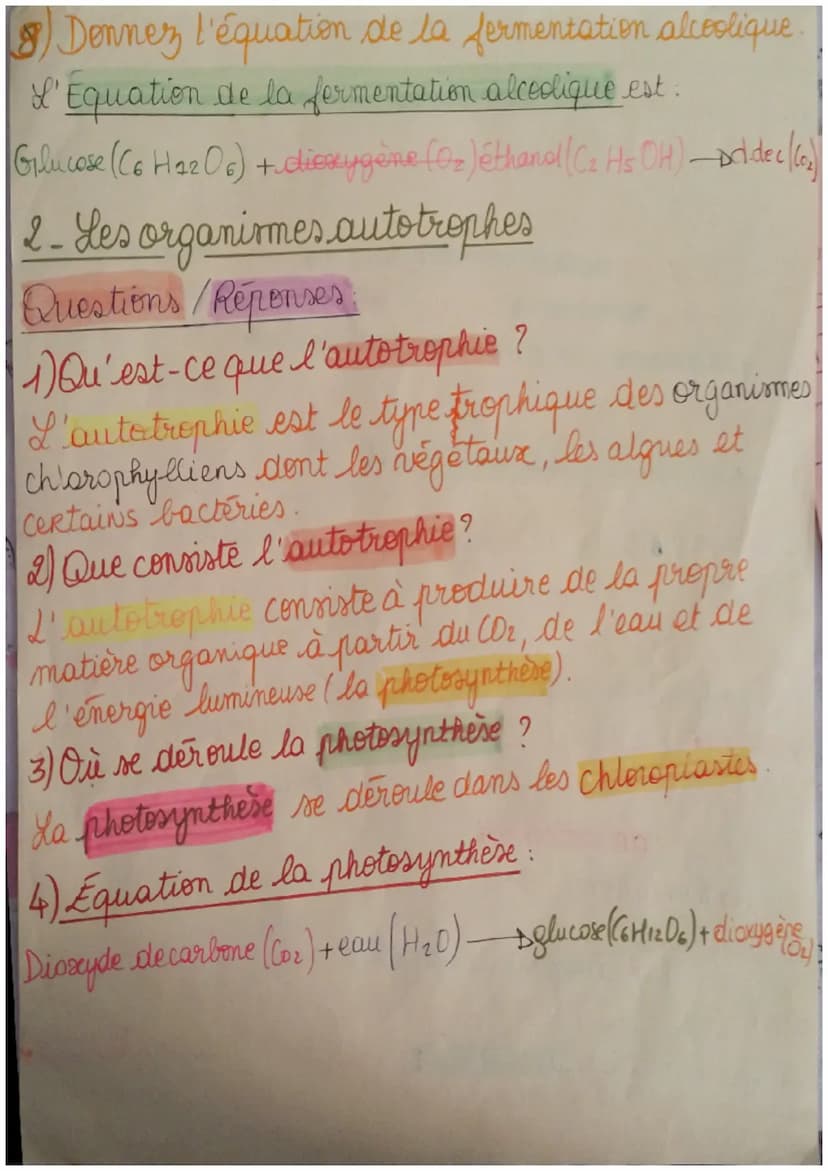 8) Donnez l'équation de la fermentation alcoolique.
L'Équation de la fermentation alcoolique est :
Glucose (C6 H22 O6) + dioxygène (O2) éthanol (C2 H5 OH) → d.de c (CO2)
2 - Les organismes autotrophes
Questions / Réponses :
1) Qu'est-ce que l'autotrophie ?
L'autotrophie est le type trophique des organismes
chlorophylliens dont les végétaux, les algues et
certains bactéries.
2) Que consiste l'autotrophie ?
L'autotrophie consiste à produire de la propre
matière organique à partir du CO2, de l'eau et de
l'énergie lumineuse (la photosynthèse).
3) Où se déroule la photosynthèse ?
La photosynthèse se déroule dans les chloroplastes.
4) Équation de la photosynthèse :
Dioxyde de carbone (CO2) + eau (H2O) → glucose (C6H12O6) + dioxygène (O2)